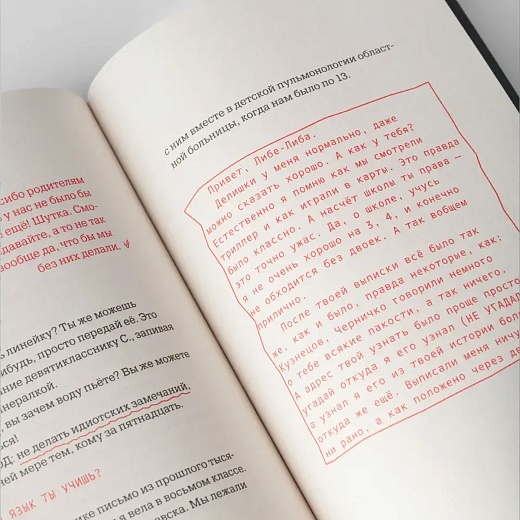 сибо родителям
у нас не было бы
ещё! Шутка. Смо-
давайте, а то не так
вообще да, что бы мы
без них делали.
линейку? Ты же можешь
нибудь, просто передай её. Это
ние девятикласснику С., запивая
нералкой.
, вы зачем воду пьёте? Вы же можете
ься!
ОД: не делать идиотских замечаний,
ней мере тем, кому за пятнадцать.
ЯЗЫК ТЫ УЧИШЬ?
ике письмо из прошлого тыся-
я вела в восьмом классе.
авска. Мы лежали
с ним вместе в детской пульмонологии област-
ной больницы, когда нам было по 13.
Привет, Либе-Либа.
Делишки у меня нормально, даже
можно сказать хорошо. А как у тебя?
Естественно я помню как мы смотрели
триллер и как играли в карты. Это правда
было классно. А насчёт школы ты права –
это точно ужас. Да, о школе, учусь
я не очень хорошо на 3, 4, и конечно
не обходится без двоек. А так вобщем
прилично.
После твоей выписки всё было так
же, как и было, правда некоторые, как:
Кузнецов, Черничко говорили немного
о тебе всякие пакости, а так ничего.
А адрес твой узнать было проще просто
угадай откуда я его узнал (НЕ УГАДАЛ
а узнал я его из твоей истории бол
откуда же ещё. Выписали меня ничу
ни рано, а как положено через дв